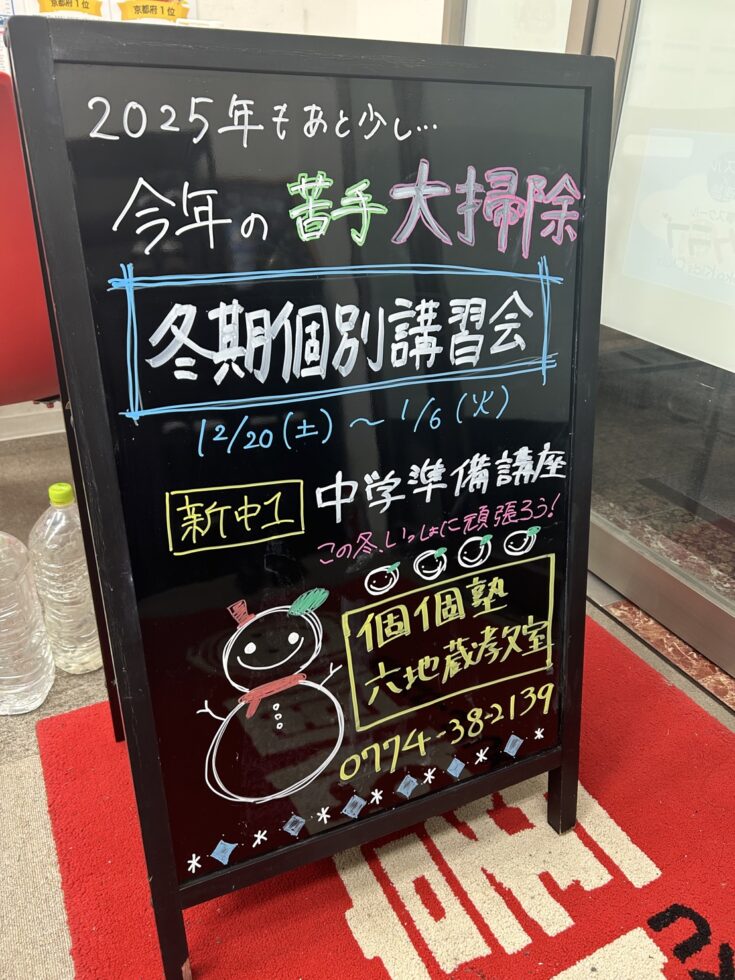 京都府1位
京都府1位
2025年もあと少し…
今年の 苦手 大掃除
冬期個別講習会
12/20(土)〜1/6(火)
新中1 中学準備講座
この冬、いっしょに頑張ろう!
個個塾
六地蔵教室
0774-38-2139